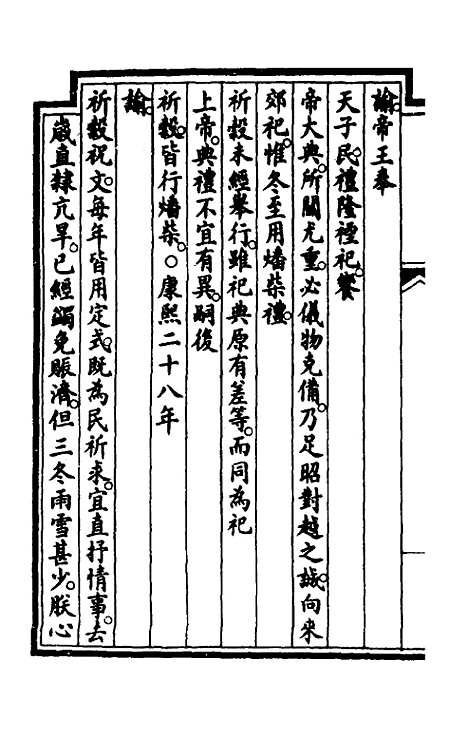 諭。帝王奉
天子民。禮隆禋祀。饗
帝大典。所關尤重。必儀物克備。乃足昭對越之誠。向來
郊祀。惟冬至用燔柴禮。
祈穀未經舉行。雖祀典原有差等。而同為祀
上帝。典禮不宜有異。嗣後
祈穀。皆行燔柴。○康熙二十八年
諭。
祈穀祝文。每年皆用定式。既為民祈求。宜直抒情事。去
歲直隸亢旱。已經蠲免賑濟。但三冬雨雪甚少。朕心